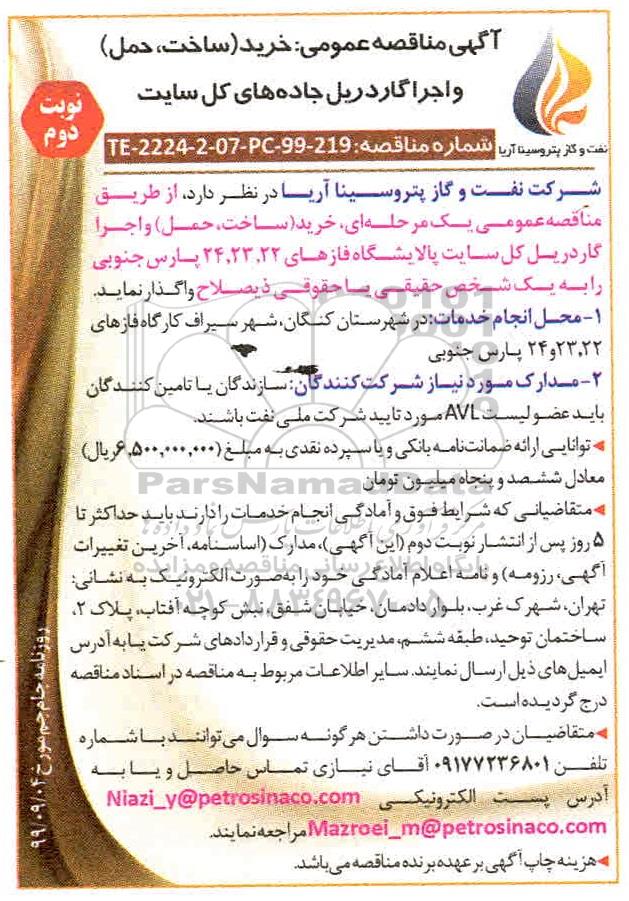 آگهی مناقصه عمومی: خرید (ساخت، حمل)
و اجرا گاردریل جاده‌های کل سایت
نوبت
دوم
نفت و گاز پتروسینا آریا
شماره مناقصه: TE-2224-2-07-PC-99-219
شرکت نفت و گاز پتروسینا آریا در نظر دارد، از طریق
مناقصه عمومی یک مرحله‌ای، خرید (ساخت، حمل) و اجرا
گاردریل کل سایت پالایشگاه فازهای ۲۴,۲۳,۲۲ پارس جنوبی
را به یک شخص حقیقی یا حقوقی ذیصلاح واگذار نماید.
۱- محل انجام خدمات: در شهرستان کنگان، شهر سیراف کارگاه فازهای
۲۳,۲۲ و ۲۴ پارس جنوبی
۲- مدارک مورد نیاز شرکت‌کنندگان: سازندگان یا تامین کنندگان
باید عضو لیست AVL مورد تایید شرکت ملی نفت باشند.
توانایی ارائه ضمانت‌نامه بانکی و یا سپرده نقدی به مبلغ (۶,۵۰۰,۰۰۰,۰۰۰ ریال)
معادل ششصد و پنجاه میلیون تومان
متقاضیانی که شرایط فوق و آمادگی انجام خدمات را دارند باید حداکثر تا
۵ روز پس از انتشار نوبت دوم (این آگهی)، مدارک (اساسنامه، آخرین تغییرات
آگهی، رزومه) و نامه اعلام آمادگی خود را به‌صورت الکترونیک به نشانی:
تهران، شهرک غرب، بلوار دادمان، خیابان شفق، نبش کوچه آفتاب، پلاک ۲،
ساختمان توحید، طبقه ششم، مدیریت حقوقی و قراردادهای شرکت یا به آدرس
ایمیل‌های ذیل ارسال نمایند. سایر اطلاعات مربوط به مناقصه در اسناد مناقصه
درج گردیده است.
متقاضیان در صورت داشتن هرگونه سوال می‌توانند با شماره
تلفن ۰۹۱۷۷۲۳۶۸۰۱ آقای نیازی تماس حاصل و یا به
آدرس پست الکترونیکی Niazi_y@petrosinaco.com
Mazroei_m@petrosinaco.com مراجعه نمایند.
هزینه چاپ آگهی بر عهده برنده مناقصه می‌باشد.
روزنامه جام جم مورخ ۹۹/۰۹/۰۴
ParsNamadData
پایگاه اطلاع رسانی مناقصه و مزایده
۰۲۱-۸۸۳۴۹۶۷۰-۵